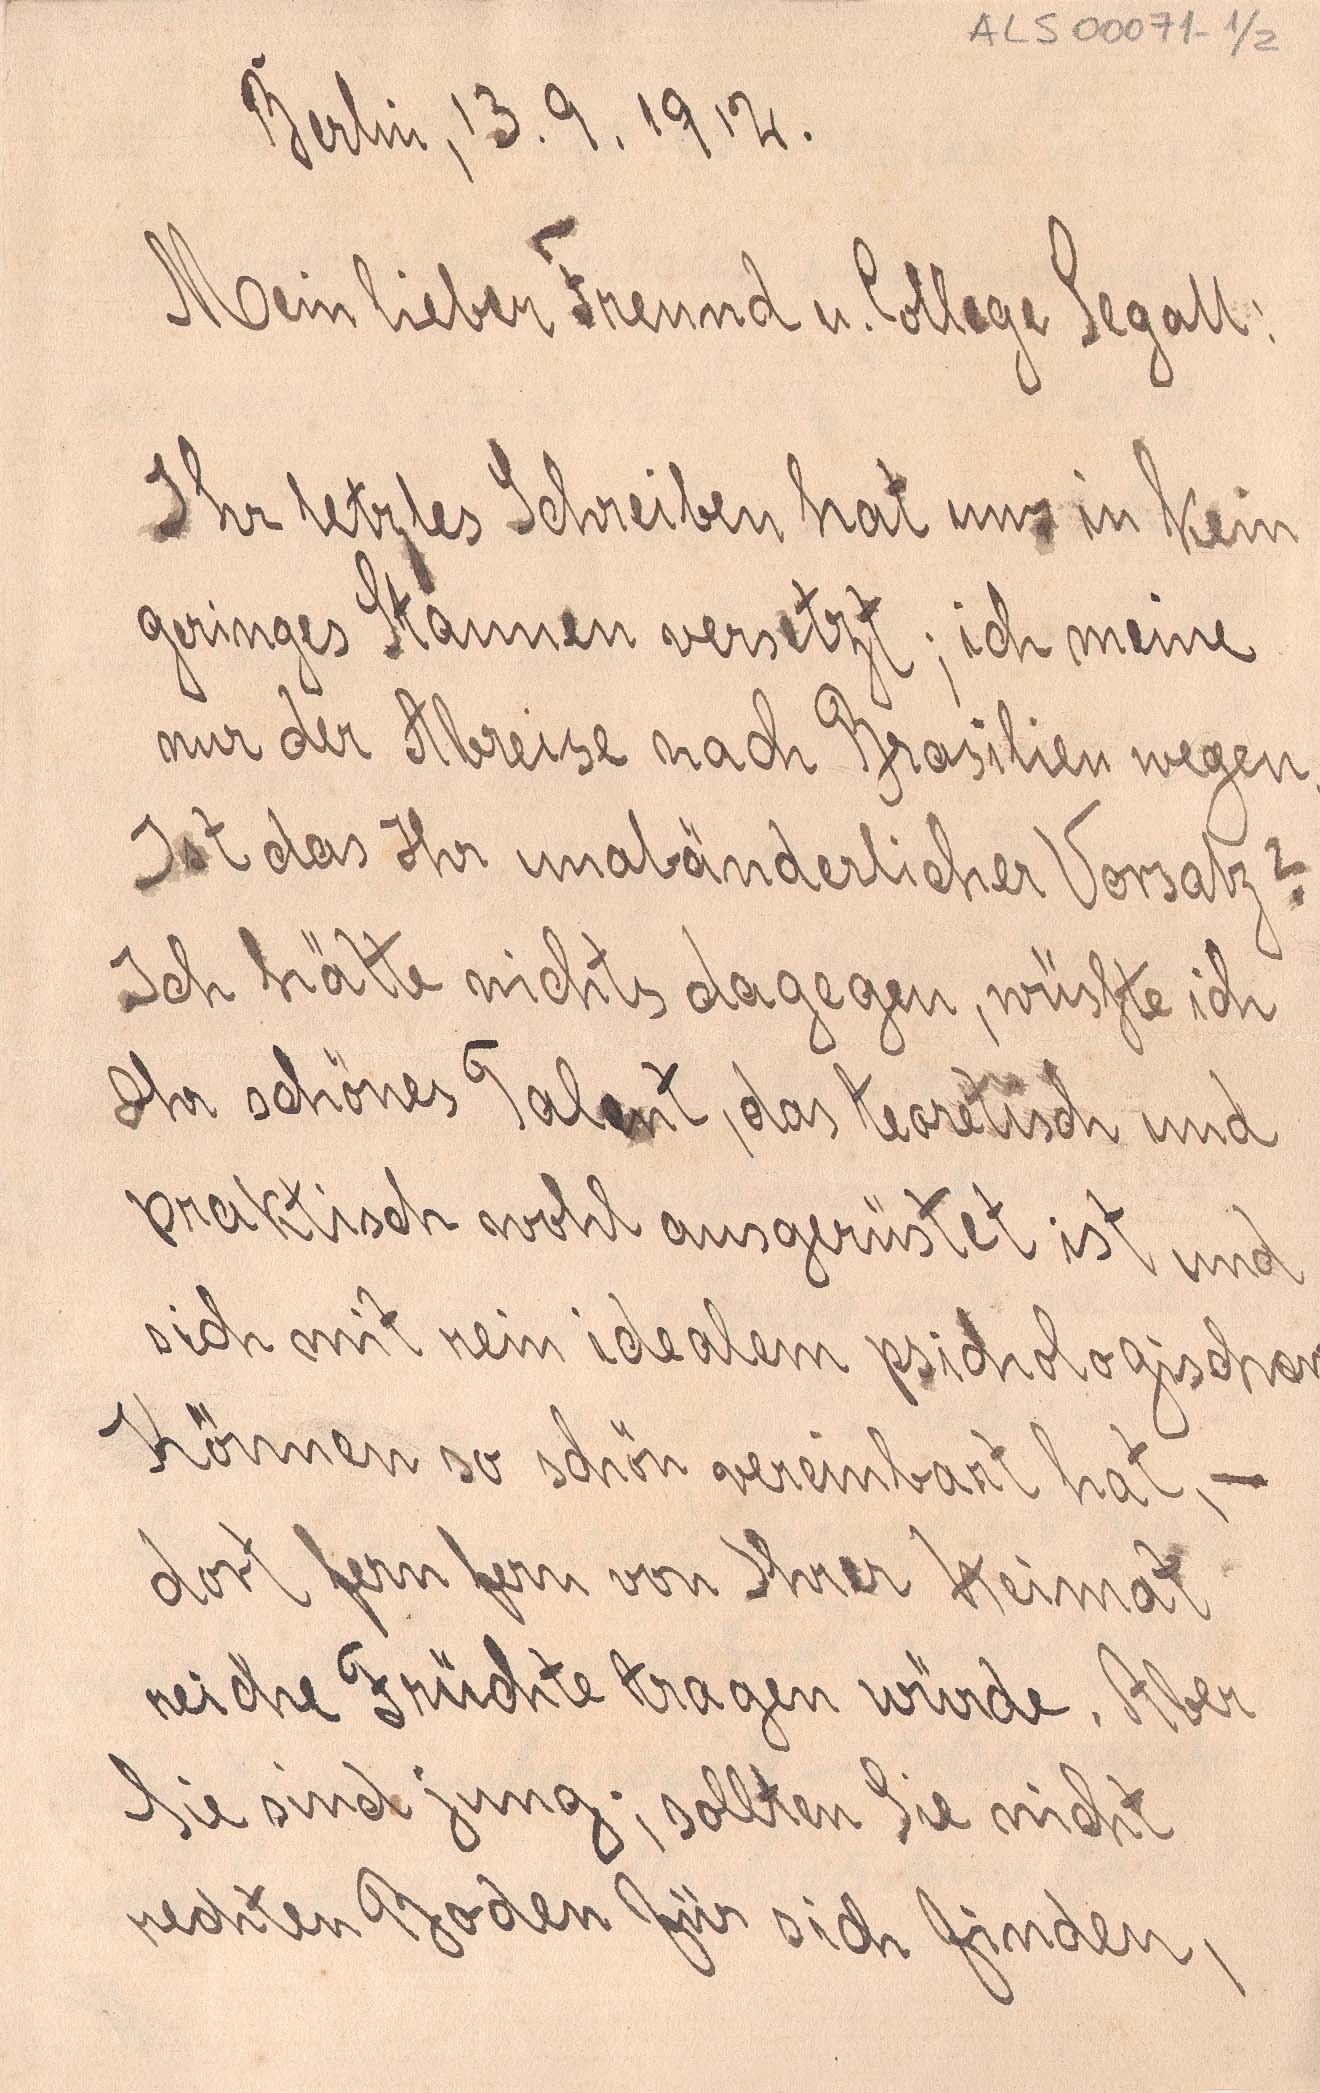 ALS 00071-1/2
Berlin, 13. 9. 1912.
Mein lieber Freund u. College Segall!
Ihr letztes Schreiben hat uns in kein
geringes Staunen versetzt; ich meine
nur der Abreise nach Brasilien wegen.
Ist das Ihr unabänderlicher Vorsatz?
Ich hätte nichts dagegen, wüsste ich
Ihr schönes Talent, das teoretisch und
praktisch wohl ausgerüstet ist und
sich mit rein idealem psichologischen
Können so schön vereinbart hat, –
dort fern fern von Ihrer Heimat
reiche Früchte tragen würde. Aber
Sie sind jung; sollten Sie nicht
rechten Boden für sich finden,